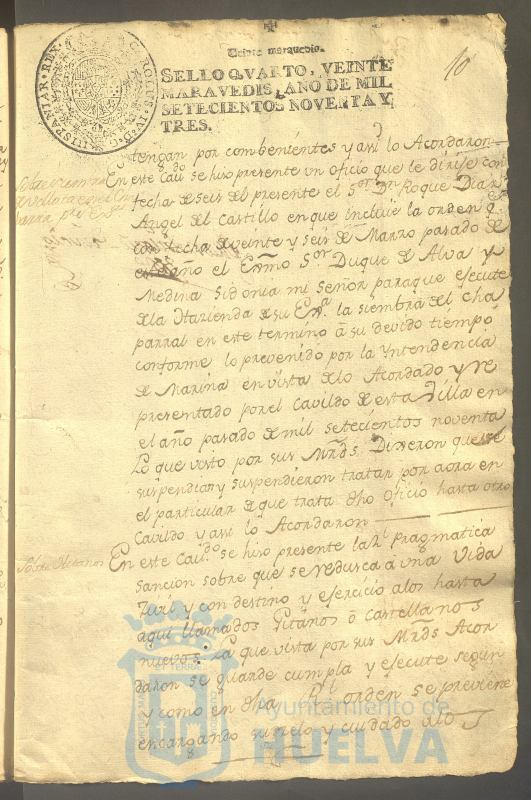 Veinte maravedis.
SELLO QVARTO, VEINTE
MARAVEDIS, AÑO DE MIL
SETECIENTOS NOVENTA Y
TRES.
10
CAROLUS IV D G HISPANIAR REX
tengan por combenientes y assi lo Acordaron
En este Cavdo se hiso presente un oficio que le dirije con
fecha de seis del presente el Sor Dn Roque Diaz
Angel del Castillo en que incluie la orden q.
con fecha de veinte y seis de Marzo pasado de
este año el Exmo Sor Duque de Alva y
Medina Sidonia mi Señor para que execute
de la Hazienda de su Exa la siembra del cha
parral en este termino â su devido tiempo
conforme lo prevenido por la Yntendencia
de Marina en vista de lo Acordado y re
presentado por el Cavildo de esta Villa en
el año pasado de mil setecientos noventa
Lo que visto por sus Mrds Dixeron que se
suspendia y suspendieron tratar por aora en
el particular de que trata dho oficio hasta otro
Cavildo y assi lo Acordaron
Sobre Jitanos
En este Cavdo se hiso presente la Rl Pragmatica
Sancion sobre que se redusca â una vida
Zivil y con destino y exercicio a los hasta
aqui llamados Gitanos ô castellanos
nuevos Lo que vista por sus Mrds Acor
daron se guarde cumpla y execute segun
y como en dha Rl orden se previene
encargando su zelo y cuidado a los
Ayuntamiento de
HUELVA